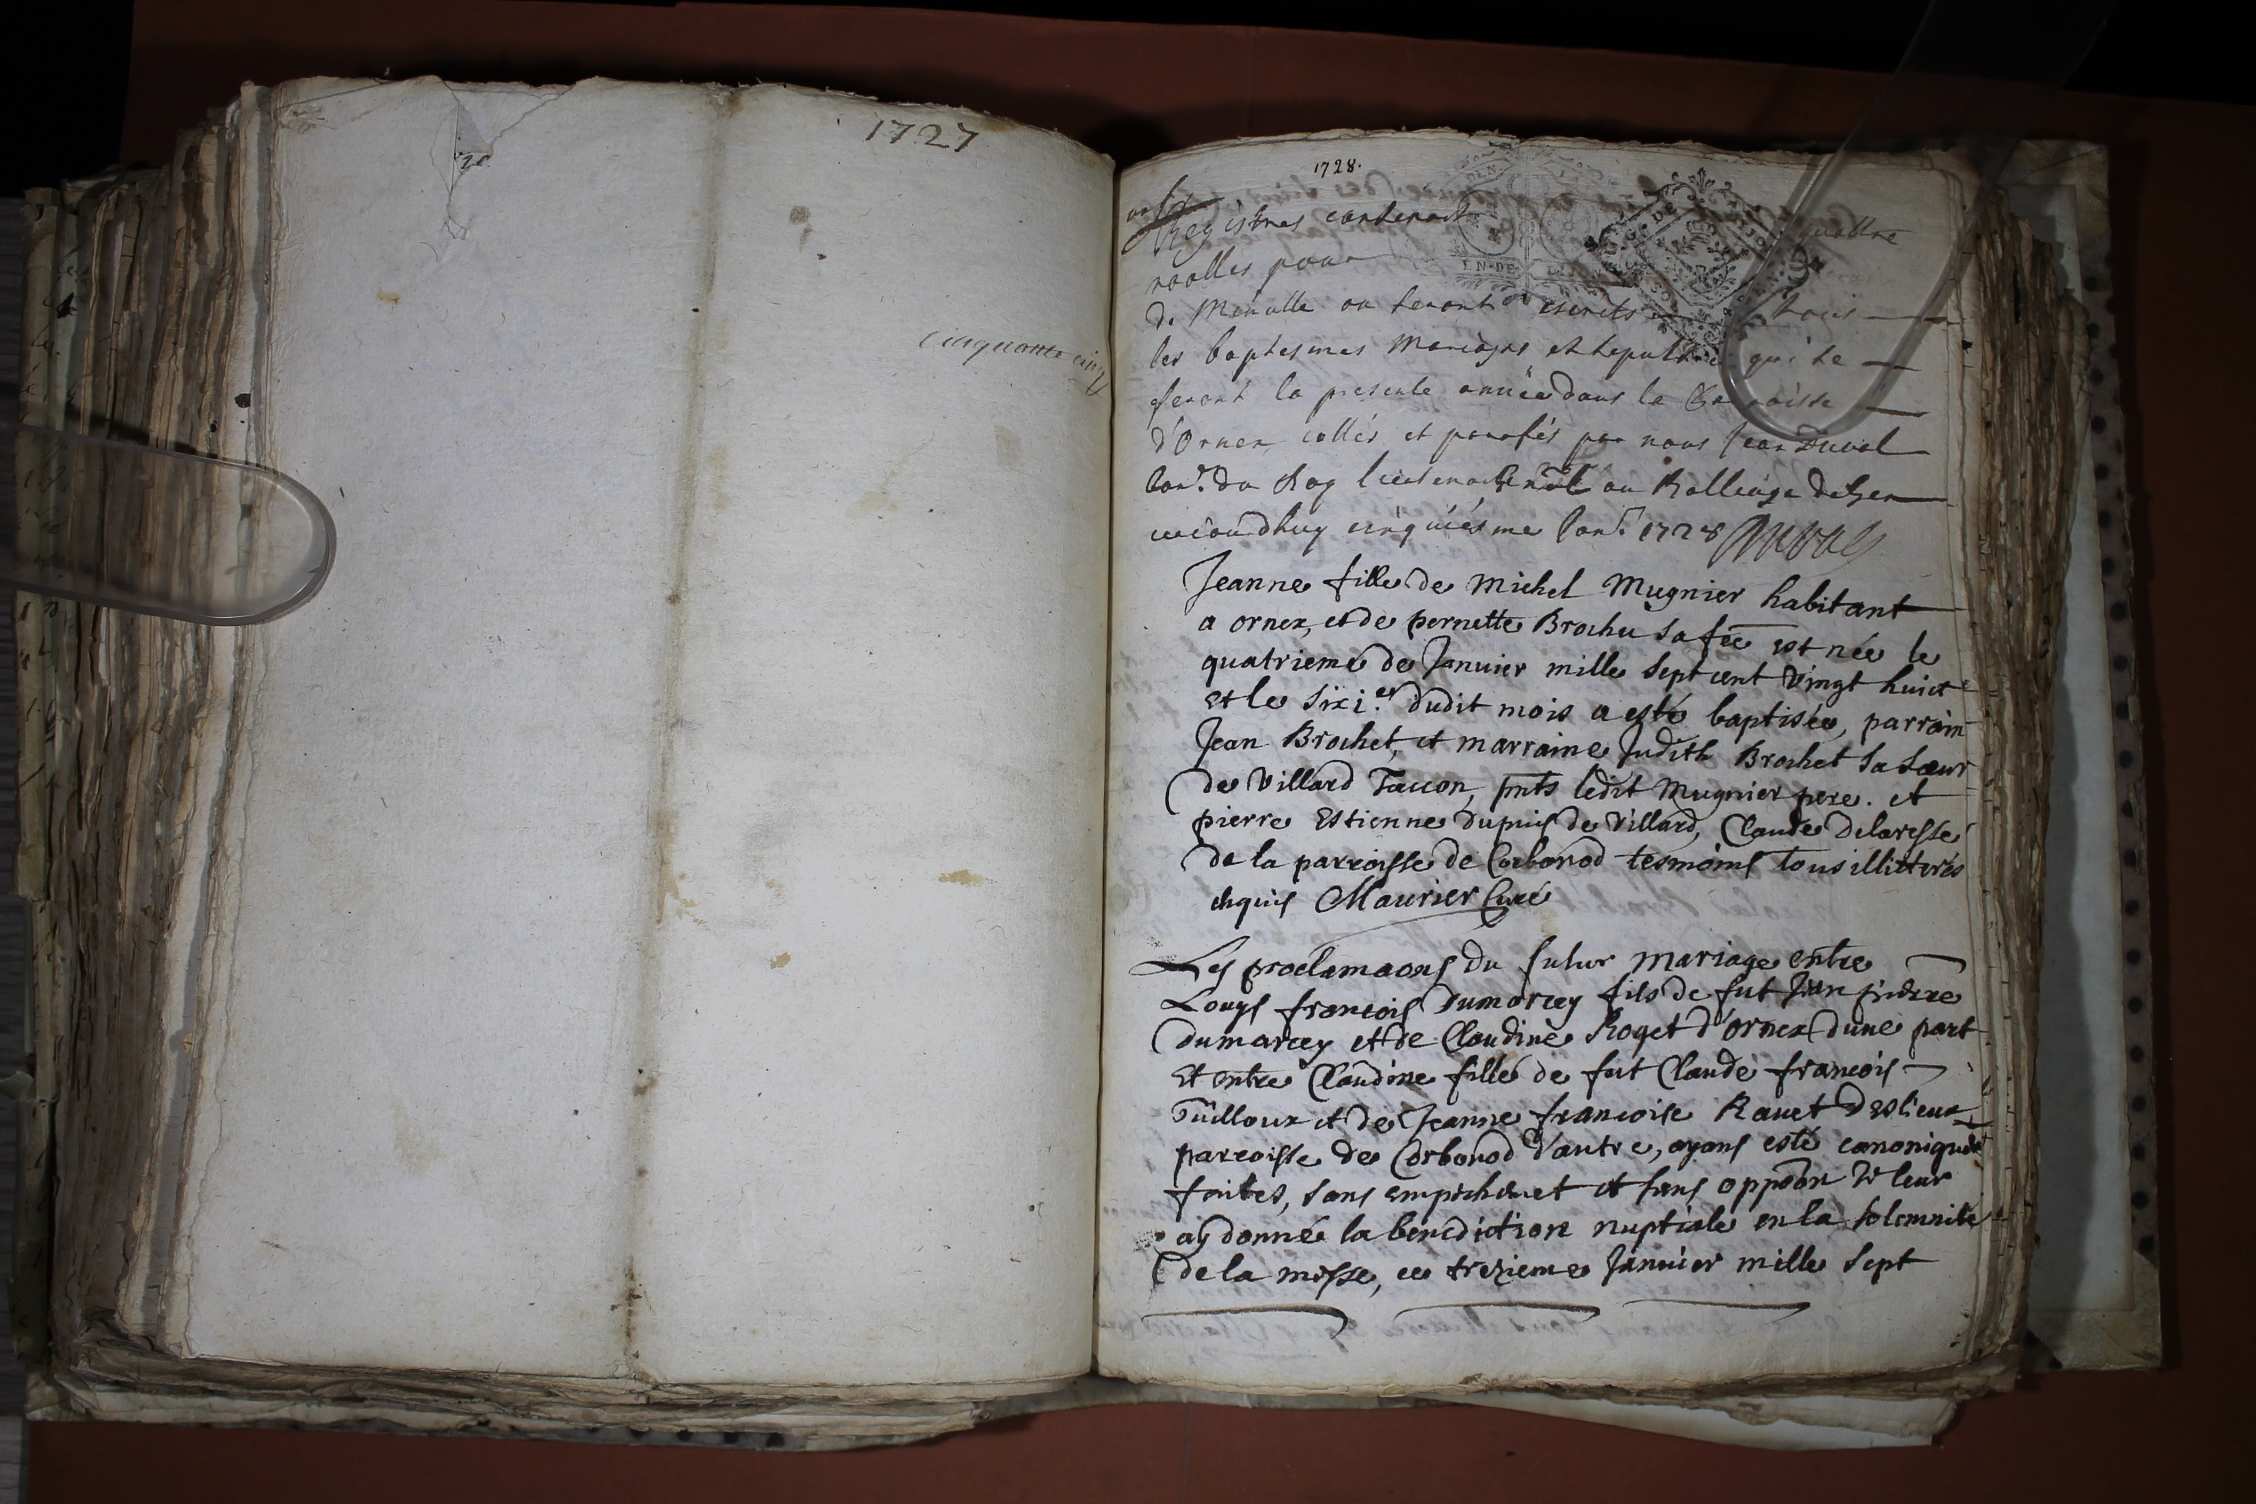 1727
Cinquante cinq
1728.
Registres contenant quattre
roolles pour
de Minutte ou seront escrits tous
les baptesmes Mariages et sepultures qui se
feront la presente année dans la Paroisse
d'Ornex, cottés et parafés par nous Jean Duval
Con.r du Roy lieutenant gnâl au Balliage de Gex
cejourdhuy cinquiésme Janr. 1728 Duval
Jeanne fille de Michel Mugnier habitant
a ornex, et de pernette Brochu sa fée est née le
quatrieme de Janvier mille sept cent vingt huict
et le sixi.e dudit mois a esté baptisée, parrain
Jean Brochet, et marraine Judith Brochet sa sœur
de Villard Taccon, pnts ledit Mugnier pere. et
pierre Estienne dupuis de Villard, Claude Delaresse
de la parroisse de Corbonod tesmoins tous illitterés
enquis Maurier Curé
Les proclamaons du futur mariage entre
Louys francois Dumarcey fils de fut Jean pierre
Dumarcey et de Claudine Roget d'ornex dune part
Et entre Claudine fille de fut Claude francois
Guilloux et de Jeanne francoise Ravet deslieux
parroisse de Corbonod d'autre, ayans esté canoniquêt
faites, sans empêchemet et sans oppoôn Je leur
ay donné la benediction nuptiale en la solemnité
de la messe, ce trezieme Janvier mille sept